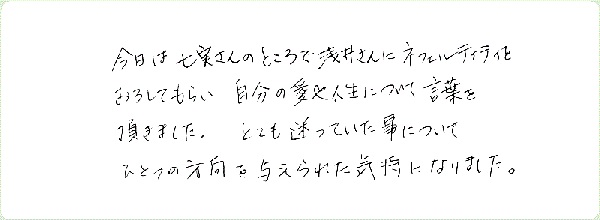 今日は七実さんのところで浅井さんにネフェルティティを
おろしてもらい 自分の愛や人生について言葉を
頂きました。 とても迷っていた事について
ひとつの方向を与えられた気持になりました。